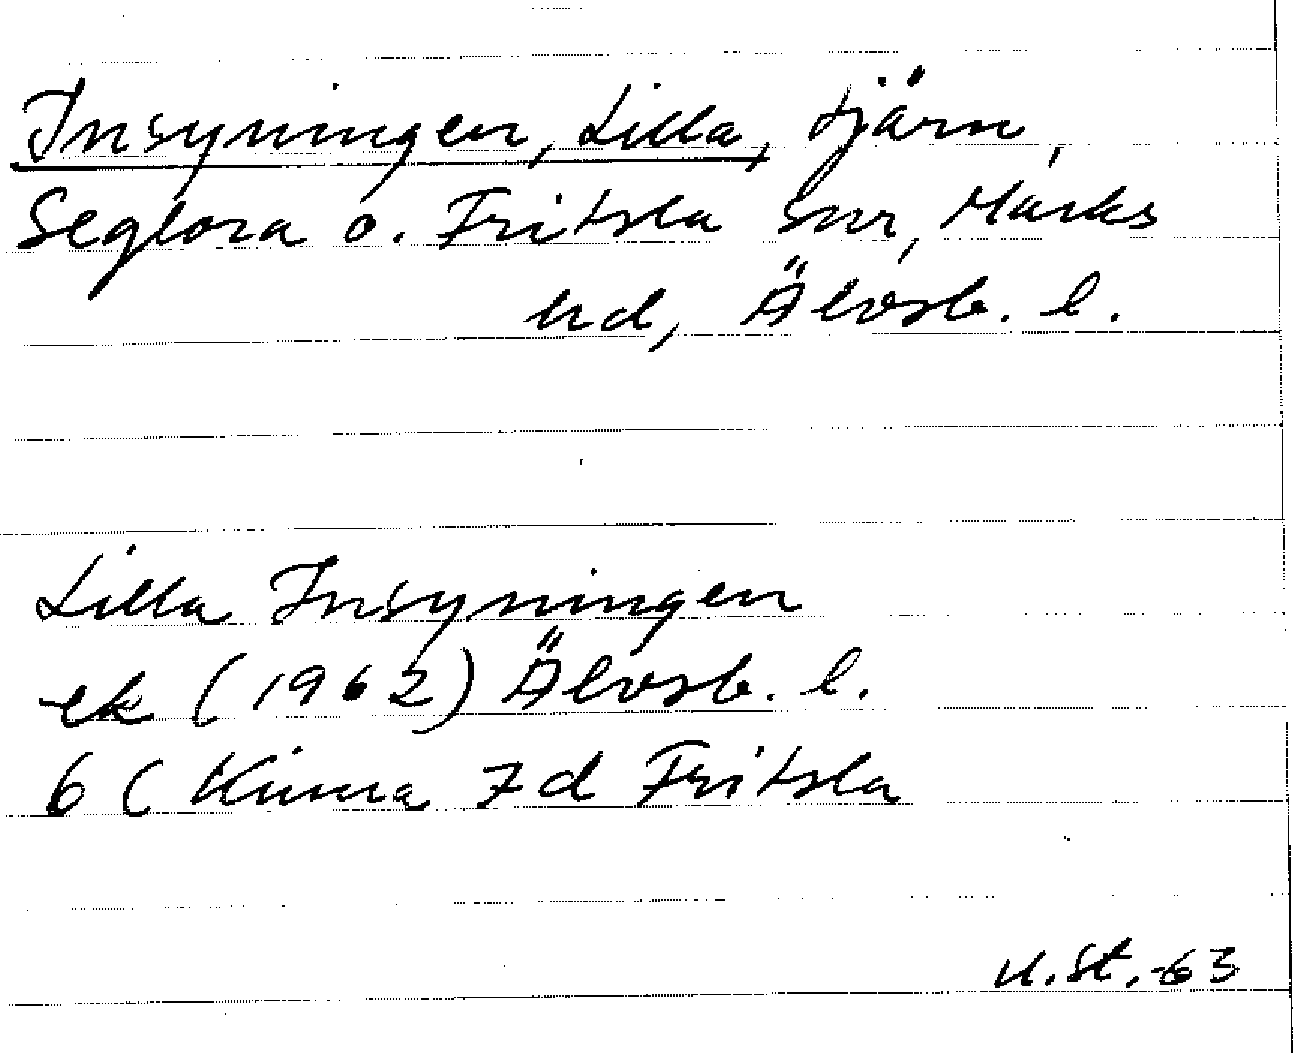 Insyningen, Lilla, tjärn,
Seglora o. Fritsla snr, Marks
hd, Älvsb. l.
Lilla Insyningen
ek (1962) Älvsb. l.
6 C Kinna 7 d Fritsla
U.St.-63